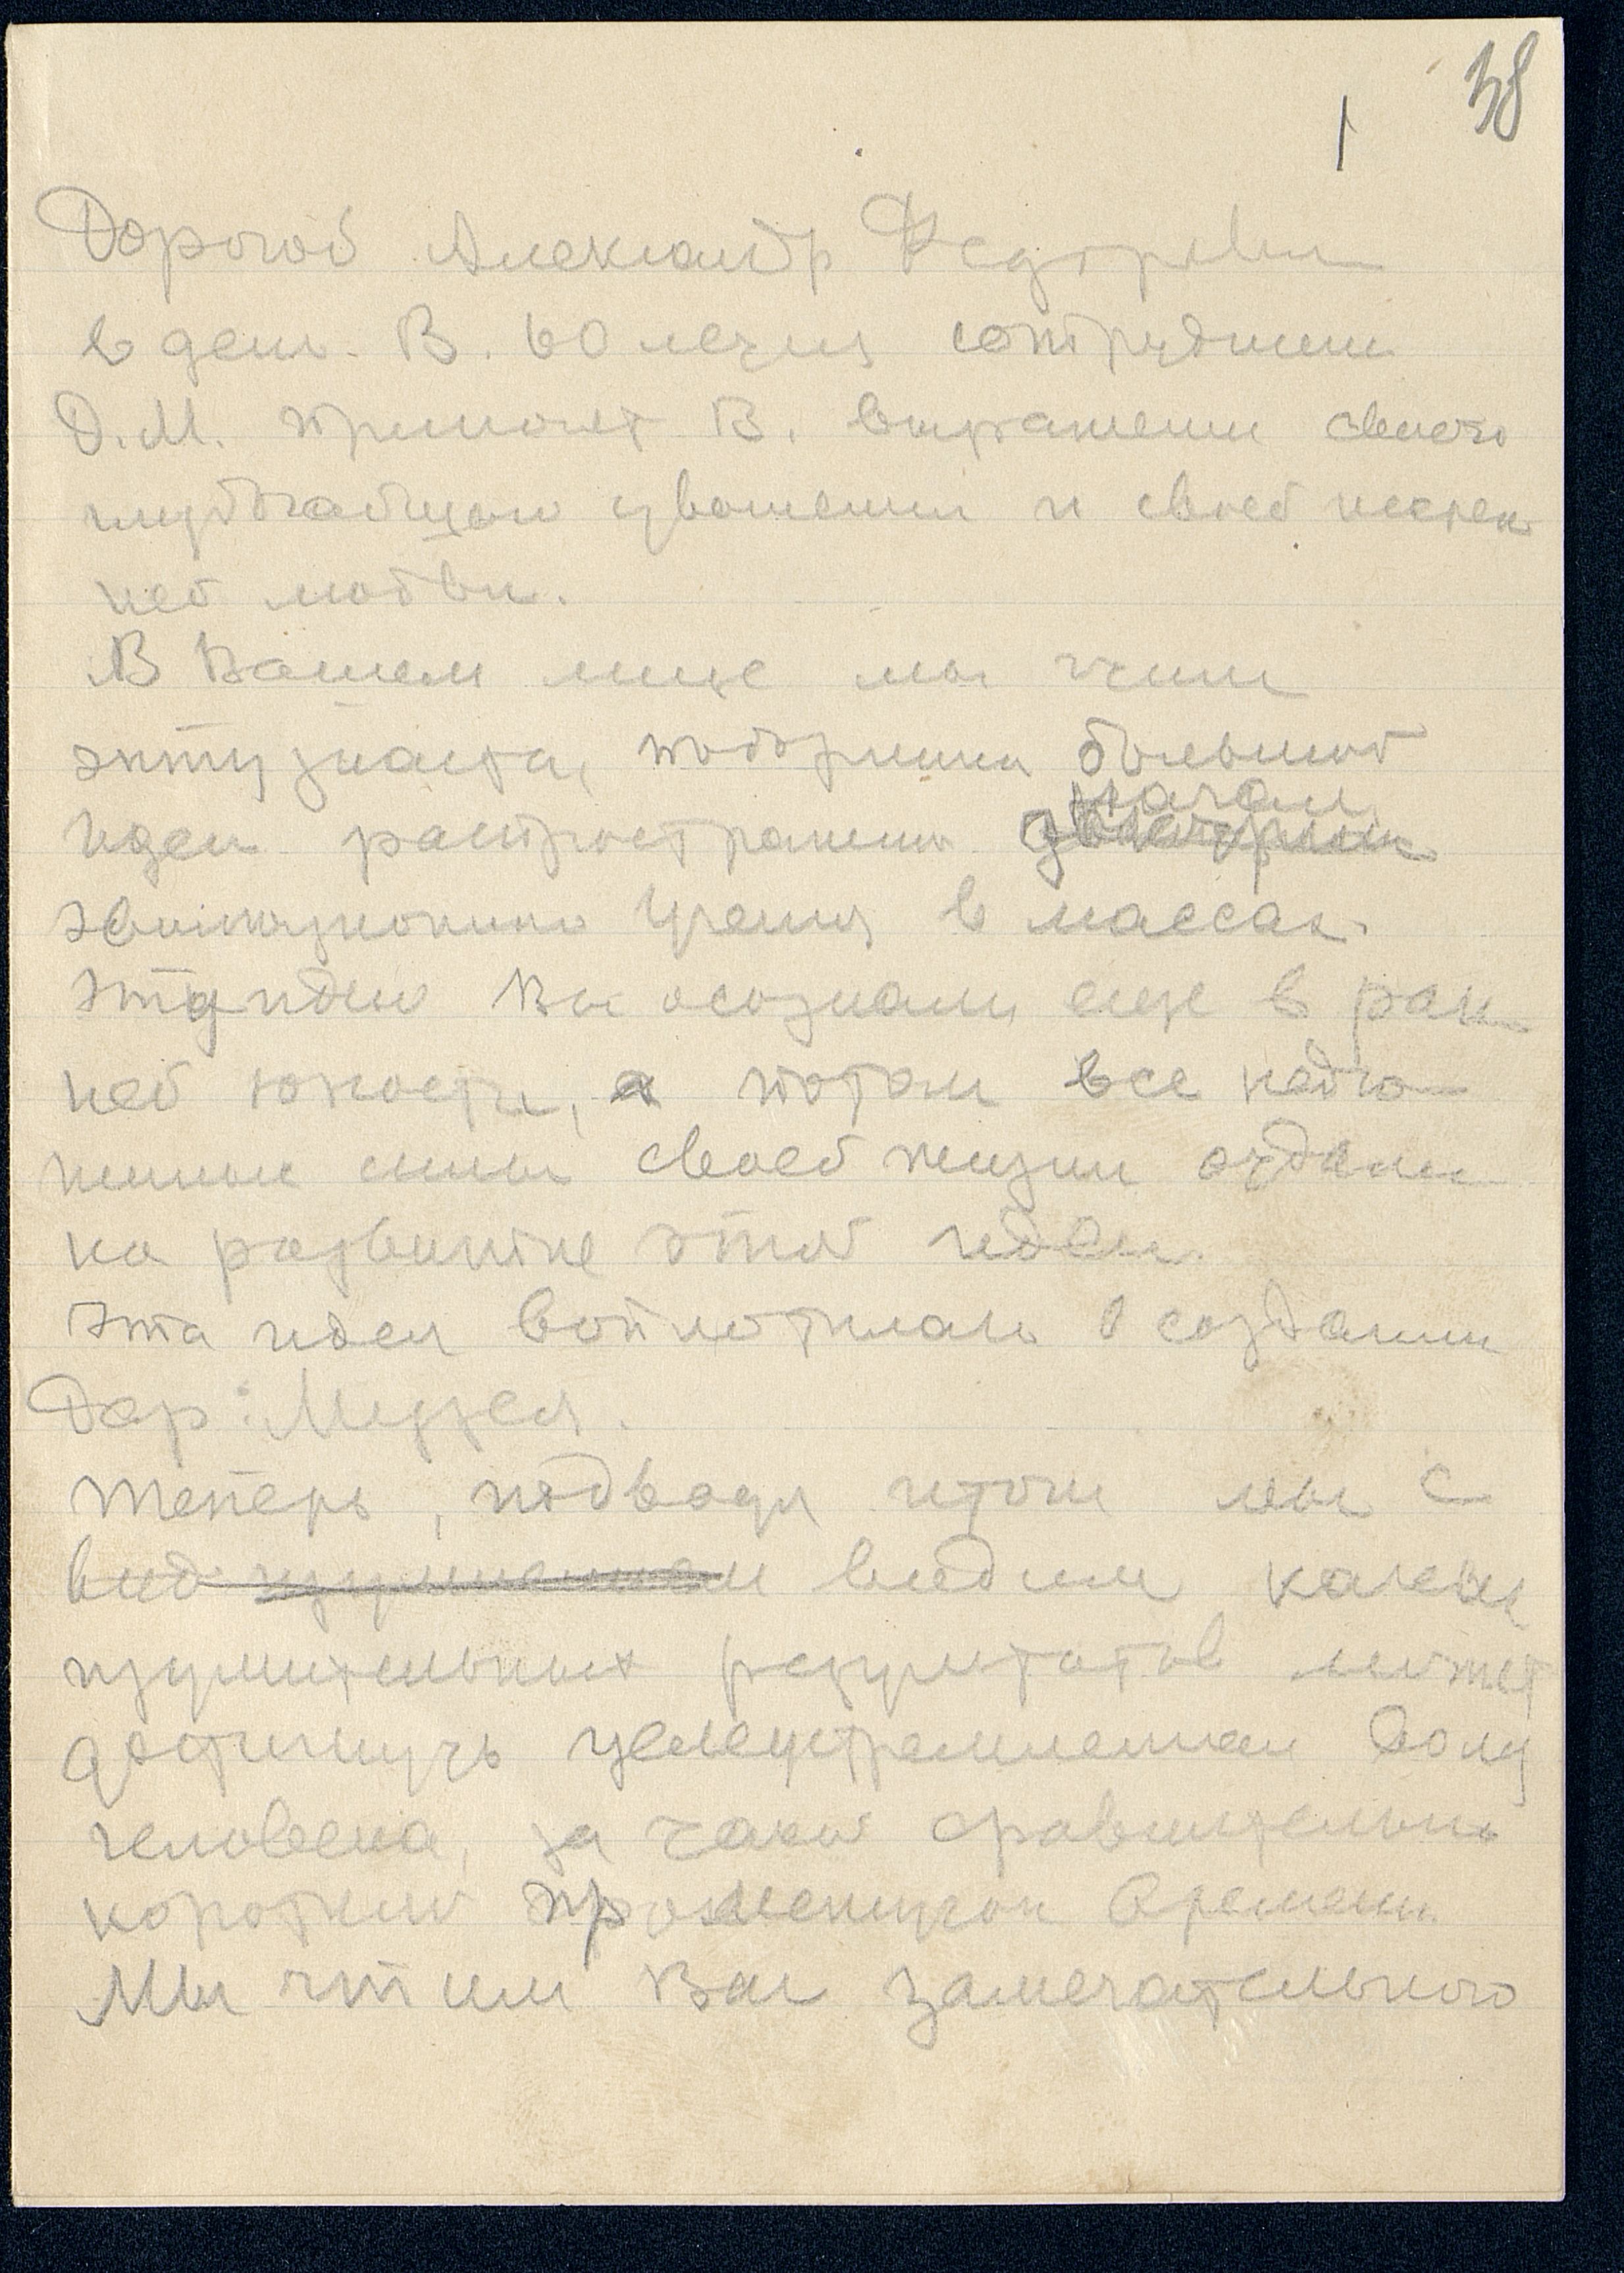 38
1
Дорогой Александр Федорович
в день В. 60 летия сотрудники
Д.М. приносят В. выражения своего
глубочайшего уважения и своей искрен
ней любви.
В Вашем лице мы чтим
энтузиаста, поборника большой
начал
идеи распространения
эволюционного учения в массах.
Эту идею Вы осознали еще в ран
ней юности, а потом все недю
жинные силы своей жизни отдали
на развитие этой идеи.
Эта идея воплотилась в создании
Дар. Музея.
Теперь, подводя итоги мы с
вид изумлением видим каких
изумительных результатов может
достигнуть целеустремленная воля
человека, за такой сравнительно
короткий промежуток времени.
Мы чтим Вас замечательного